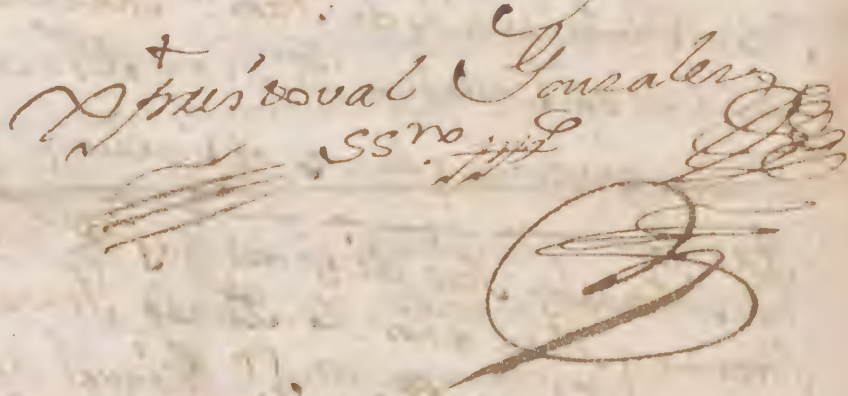 Xpristoval Gonzalez
SSno